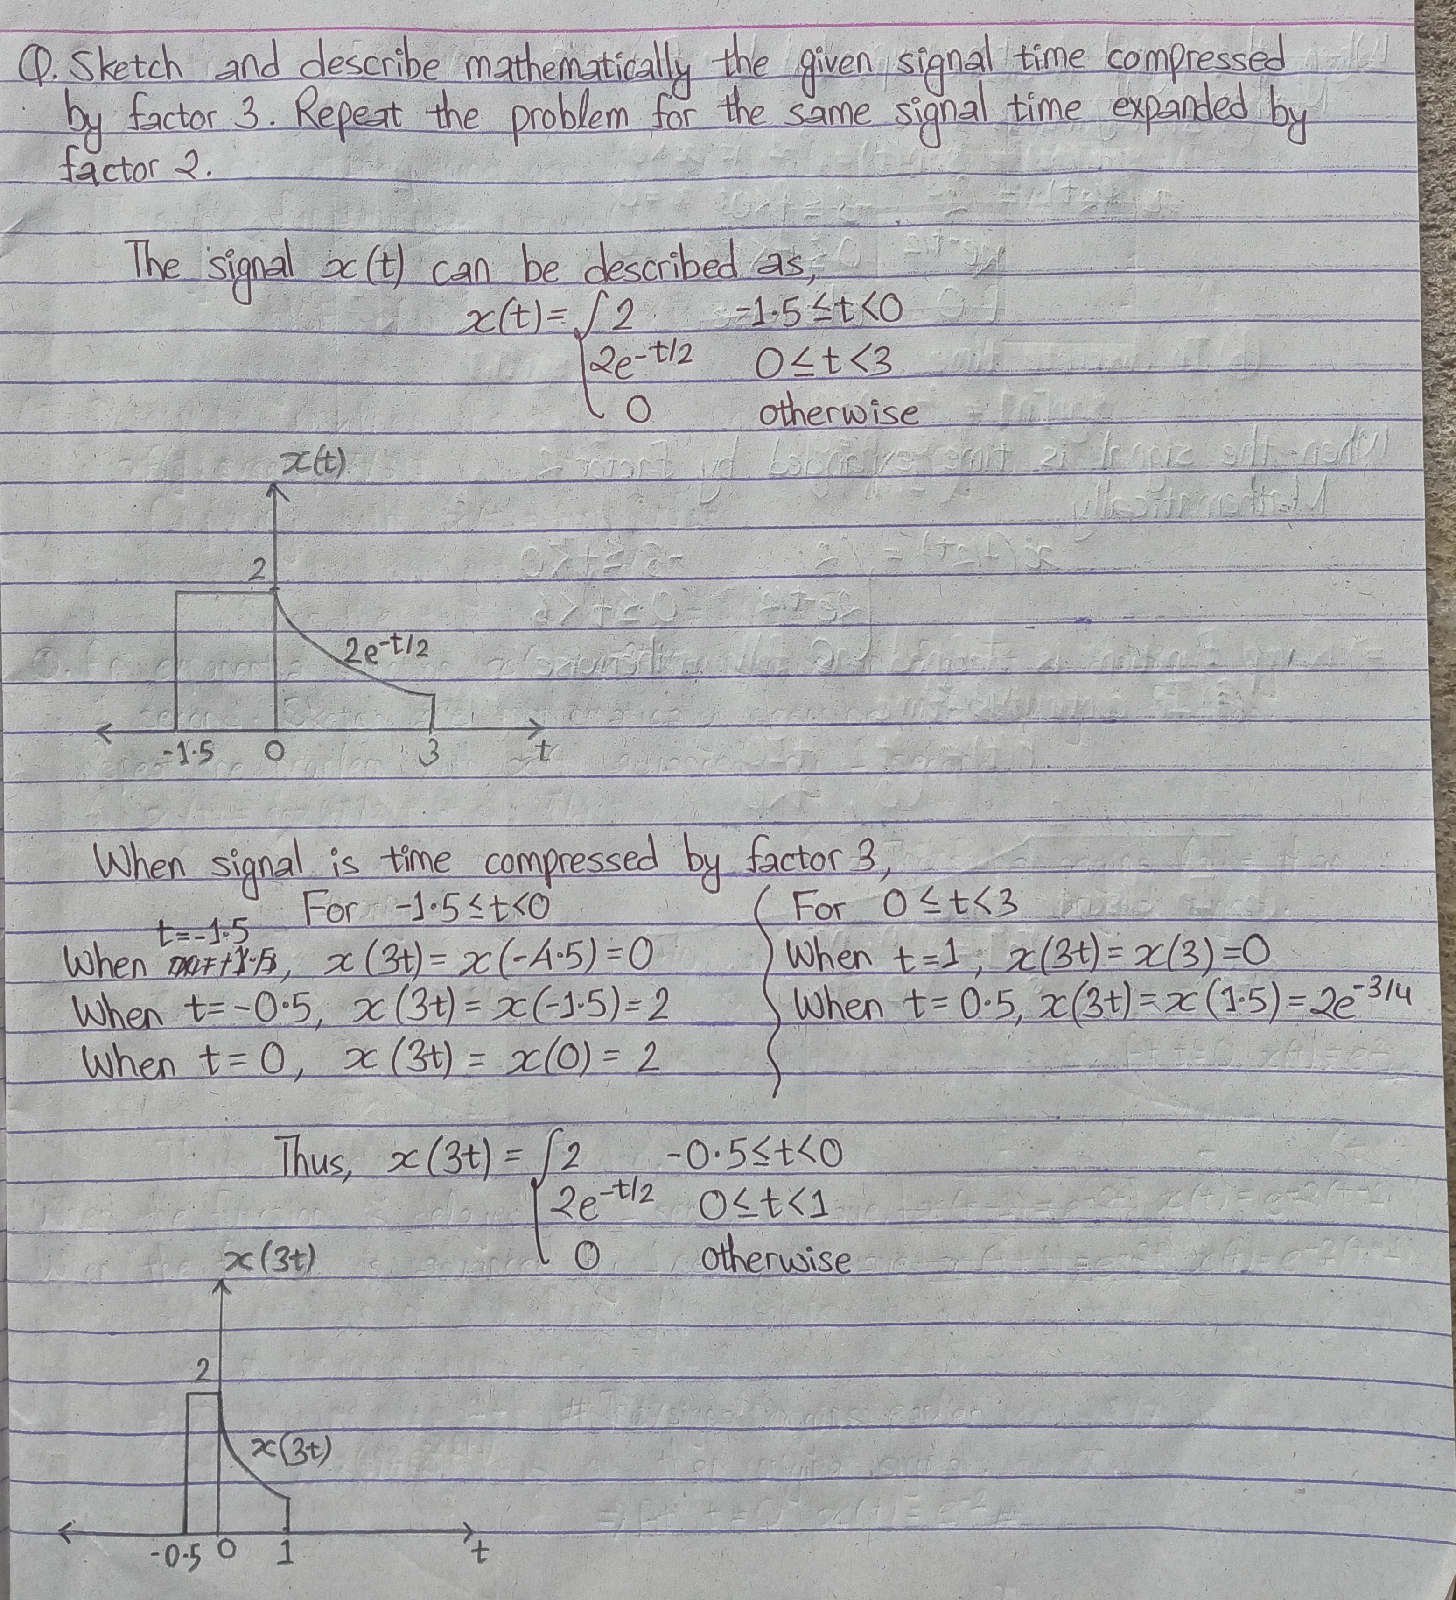 Q. Sketch and describe mathematically the given signal time compressed
by factor 3. Repeat the problem for the same signal time expanded by
factor 2.
The signal x(t) can be described as,
x(t) = { 2 -1.5 ≤ t < 0
2e^{-t/2} 0 ≤ t < 3
0 otherwise
x(t)
2
2e^{-t/2}
-1.5 0 3 t
When signal is time compressed by factor 3,
For -1.5 ≤ t < 0
t=-1.5
When x(3t) = x(-4.5) = 0
When t = -0.5, x(3t) = x(-1.5) = 2
When t = 0, x(3t) = x(0) = 2
For 0 ≤ t < 3
When t=1, x(3t) = x(3) = 0
When t = 0.5, x(3t) = x(1.5) = 2e^{-3/4}
Thus, x(3t) = { 2 -0.5 ≤ t < 0
2e^{-t/2} 0 ≤ t < 1
0 otherwise
x(3t)
2
x(3t)
-0.5 0 1 t